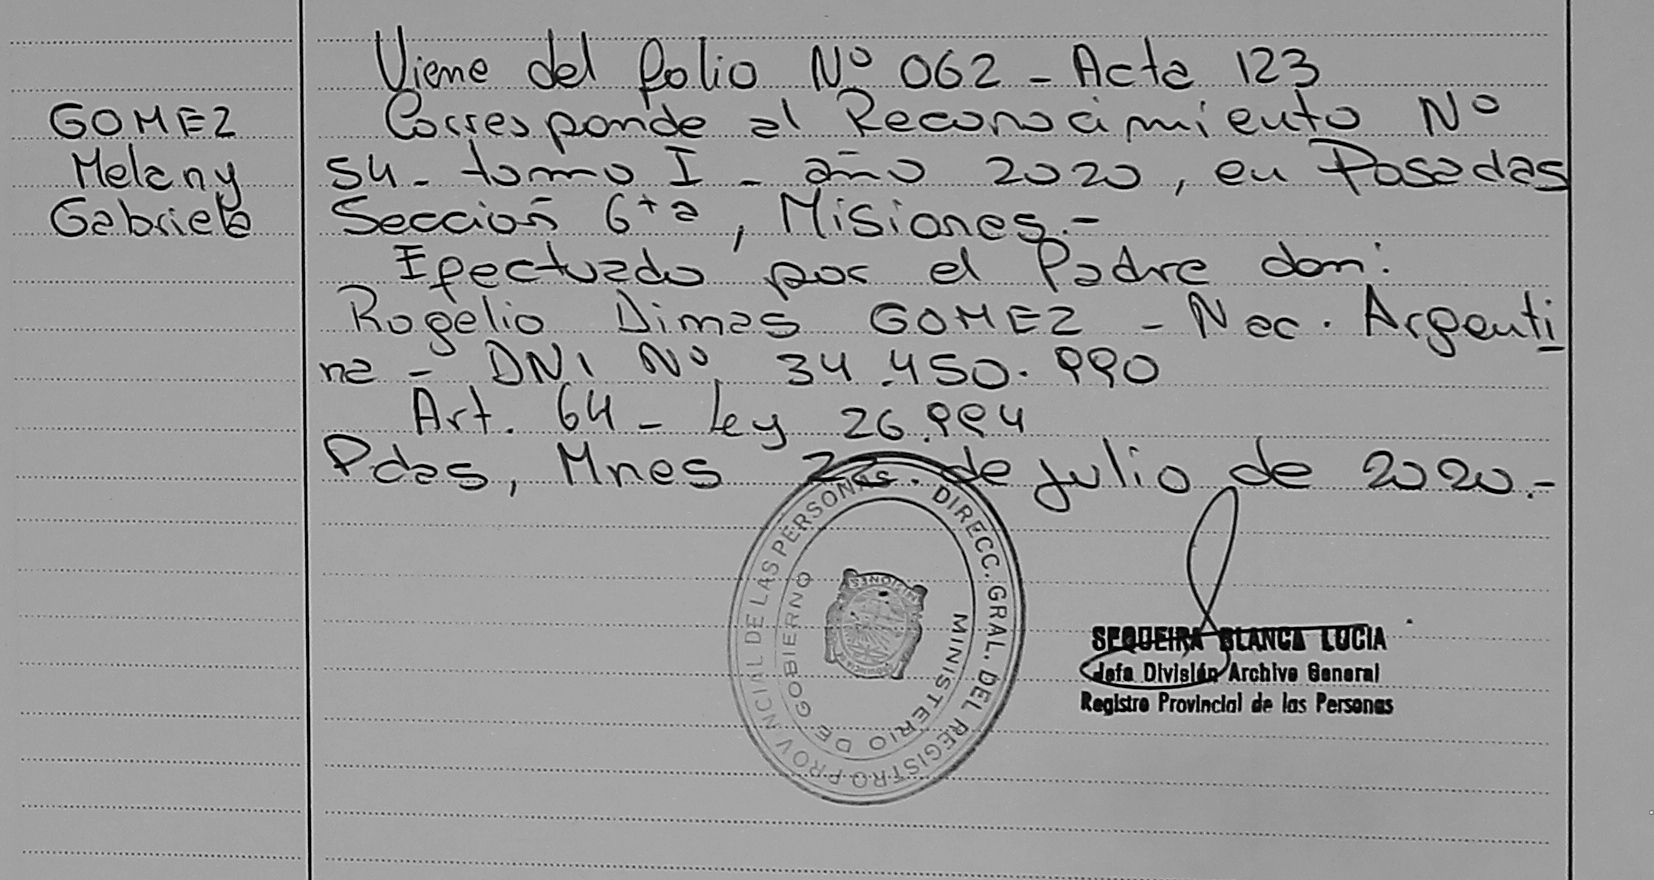 Viene del folio Nº 062 - Acta 123
GOMEZ
Melany
Gabriela
Corresponde al Reconocimiento Nº
54 - tomo I - año 2020, en Posadas
Sección 6ta, Misiones.-
Efectuado por el Padre don:
Rogelio Dimas GOMEZ - Nac. Argenti
na - DNI Nº 34.450.990
Art. 64 - Ley 26.994
Pdas, Mnes de julio de 2020.-
DIRECC. GRAL. DEL REGISTRO PROVINCIAL DE LAS PERSONAS
MINISTERIO DE GOBIERNO
MISIONES
SEQUEIRA BLANCA LUCIA
Jefa División Archivo General
Registro Provincial de las Personas